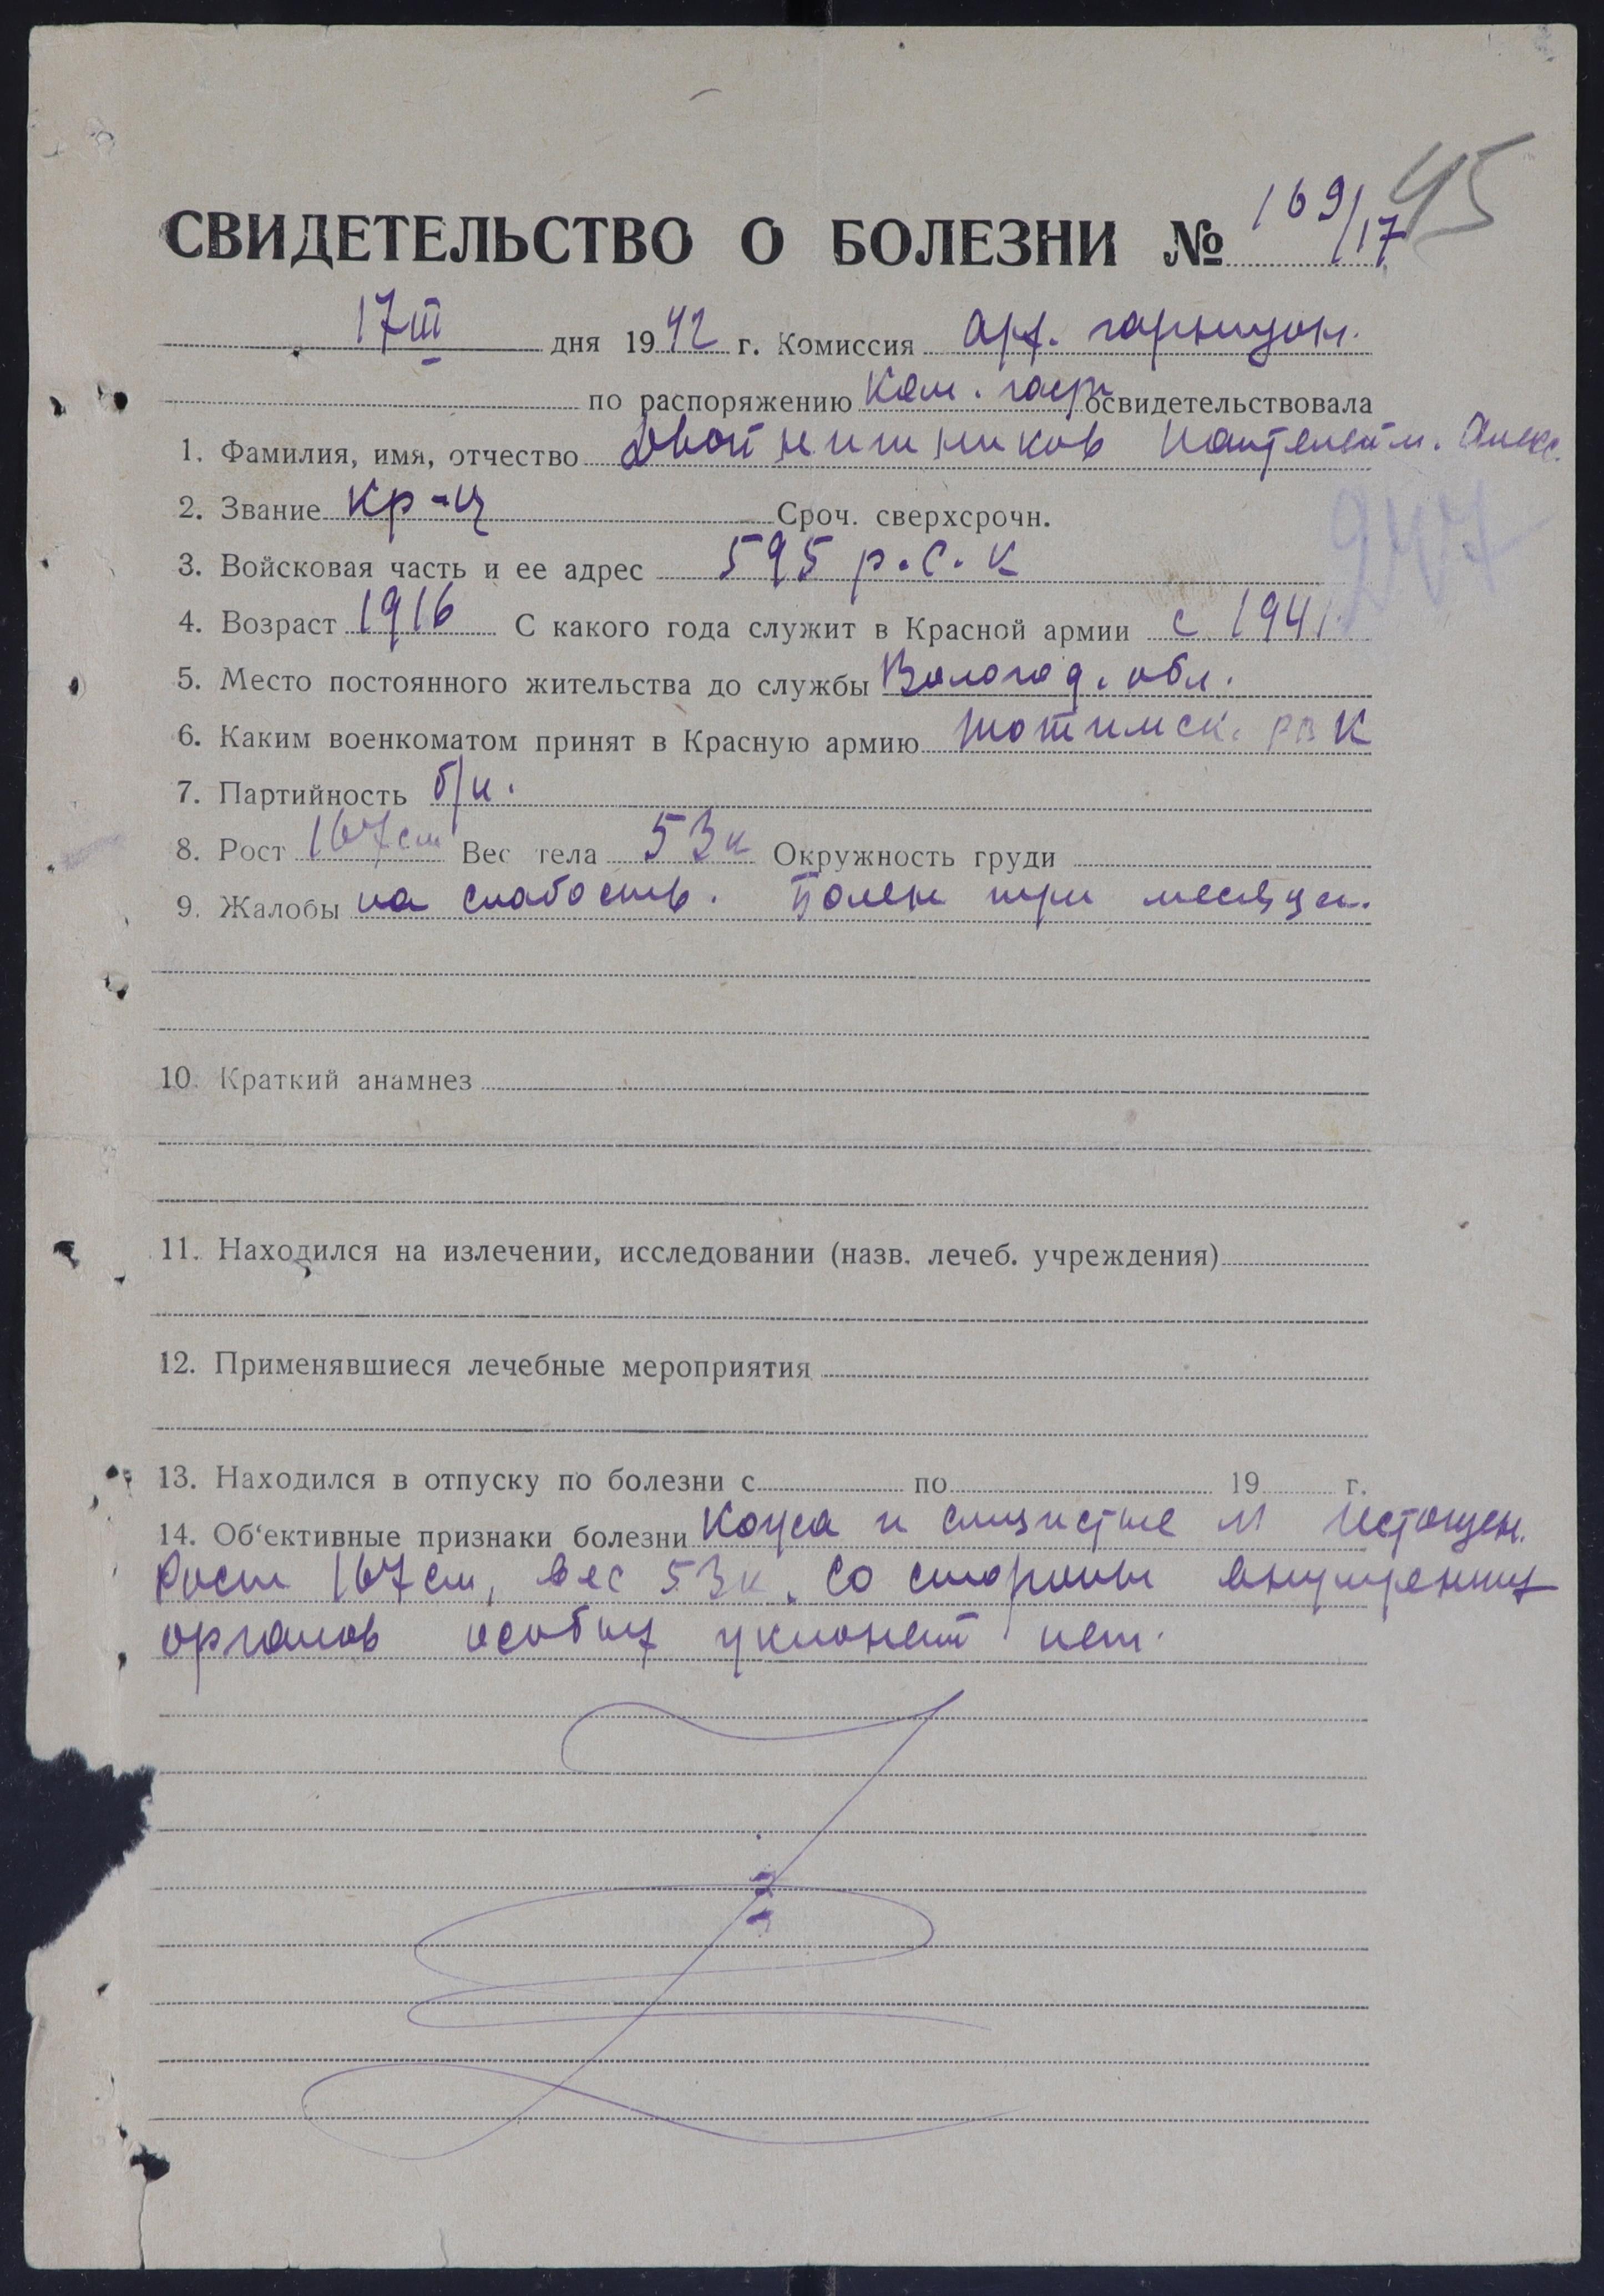 45
СВИДЕТЕЛЬСТВО О БОЛЕЗНИ № 169/17
17 III дня 1942 г. Комиссия Арх. гарнизон.
по распоряжению Нач. гарн освидетельствовала
1. Фамилия, имя, отчество Двойнишников Пантелейм. Алекс.
2. Звание кр-ц Сроч. сверхсрочн.
247
3. Войсковая часть и ее адрес 595 р.с.к
4. Возраст 1916 С какого года служит в Красной армии с 1941
5. Место постоянного жительства до службы Вологод. обл.
6. Каким военкоматом принят в Красную армию Тотимск. РВК
7. Партийность б/п.
8. Рост 167 см Вес тела 53 к Окружность груди
9. Жалобы на слабость. Болен три месяца.
10. Краткий анамнез
11. Находился на излечении, исследовании (назв. лечеб. учреждения)
12. Применявшиеся лечебные мероприятия
13. Находился в отпуску по болезни с по 19 г.
14. Об‘ективные признаки болезни Кожа и слизистые истощен.
Рост 167 см, вес 53 к. Со стороны внутренних
органов особых уклонений нет.